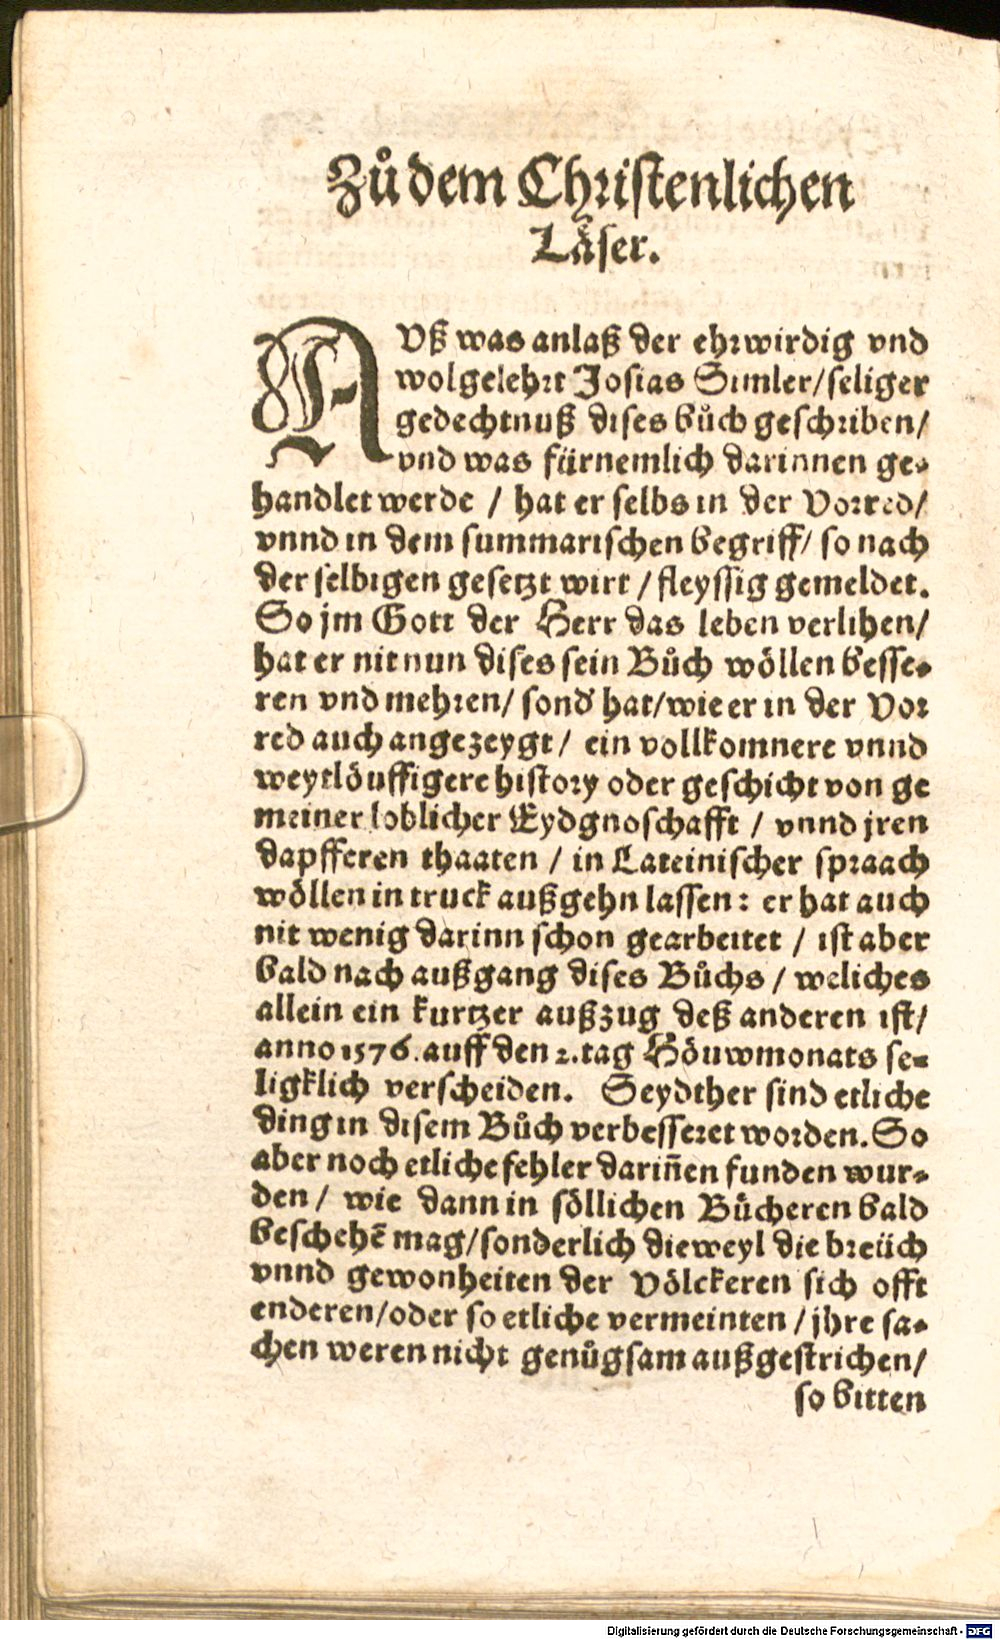 Zů dem Christenlichen
Läser.
AUß was anlaß der ehrwirdig vnd
wolgelehrt Josias Simler/seliger
gedechtnuß dises bůch geschriben/
vnd was fürnemlich darinnen ge-
handlet werde / hat er selbs in der Vorred/
vnnd in dem summarischen begriff/ so nach
der selbigen gesetzt wirt / fleyssig gemeldet.
So jm Gott der Herr das leben verlihen/
hat er nit nun dises sein Bůch wöllen besse-
ren vnd mehren/ sond' hat/wie er in der Vor
red auch angezeygt/ ein vollkomnere vnnd
weytlöuffigere history oder geschicht von ge
meiner loblicher Eydgnoschafft / vnnd jren
dapfferen thaaten / in Lateinischer spraach
wöllen in truck außgehn lassen: er hat auch
nit wenig darinn schon gearbeitet / ist aber
bald nach außgang dises Bůchs / weliches
allein ein kurtzer außzug deß anderen ist/
anno 1576. auff den 2. tag Höuwmonats se-
ligklich verscheiden. Seydther sind etliche
ding in disem Bůch verbesseret worden. So
aber noch etliche fehler dariñen funden wur-
den / wie dann in söllichen Bücheren bald
beschehẽ mag/sonderlich dieweyl die breüch
vnnd gewonheiten der Völckeren sich offt
enderen/oder so etliche vermeinten / jhre sa-
chen weren nicht genůgsam außgestrichen/
so bitten
Digitalisierung gefördert durch die Deutsche Forschungsgemeinschaft - DFG